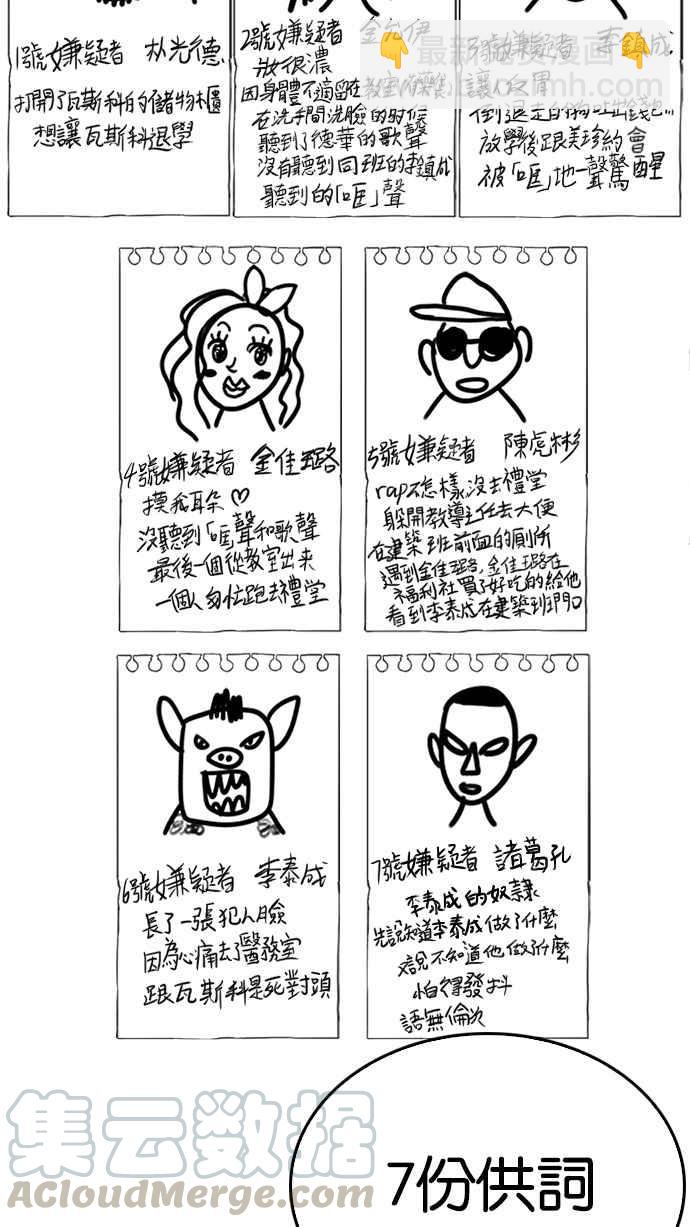 1號嫌疑者 朴光德
打開了瓦斯科的儲物櫃
想讓瓦斯科退學
2號嫌疑者 金允伊
妝很濃
因身體不適留在教室
在洗手間洗臉的时候
聽到了德華的歌聲
沒有聽到同班的李鎮成
聽到的「哐」聲
嫌疑者 李鎮成
讓人火冒
放學後跟美珍約會
被「哐」地一聲驚醒
最新
4號嫌疑者 金佳璐
摸我耳朵♡
沒聽到「哐」聲和歌聲
最後一個從教室出來
一個人匆忙跑去禮堂
5號嫌疑者 陳虎彬
rap不怎樣沒去禮堂
躲開教導主任去大便
在建築班前面的厠所
遇到金佳璐,金佳璐在
福利社買了好吃的給他
看到李泰成在建築班門口
6號嫌疑者 李泰成
長了一張犯人臉
因為心痛去了醫務室
跟瓦斯科是死對頭
7號嫌疑者 諸葛孔
李泰成的奴隸
先說知道李泰成做了什麼
又說不知道他做了什麼
怕得發抖
語無倫次
集云数据
AcloudMerge.com
7份供詞